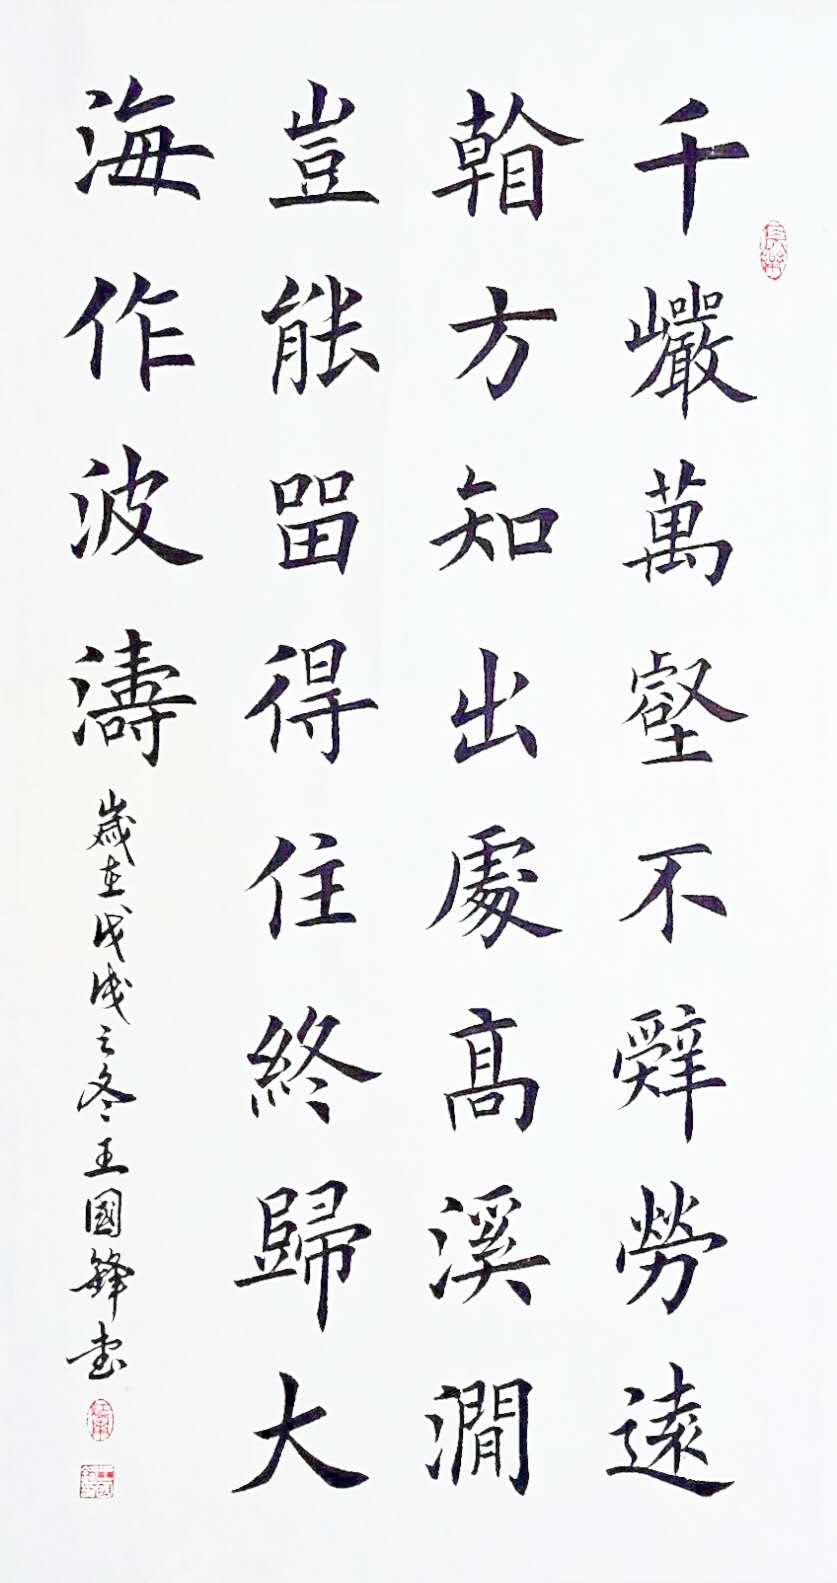 千巖萬壑不辭勞遠
看方知出處高溪澗
豈能留得住終歸大
海作波濤
歲在戊戌之冬王國鋒書